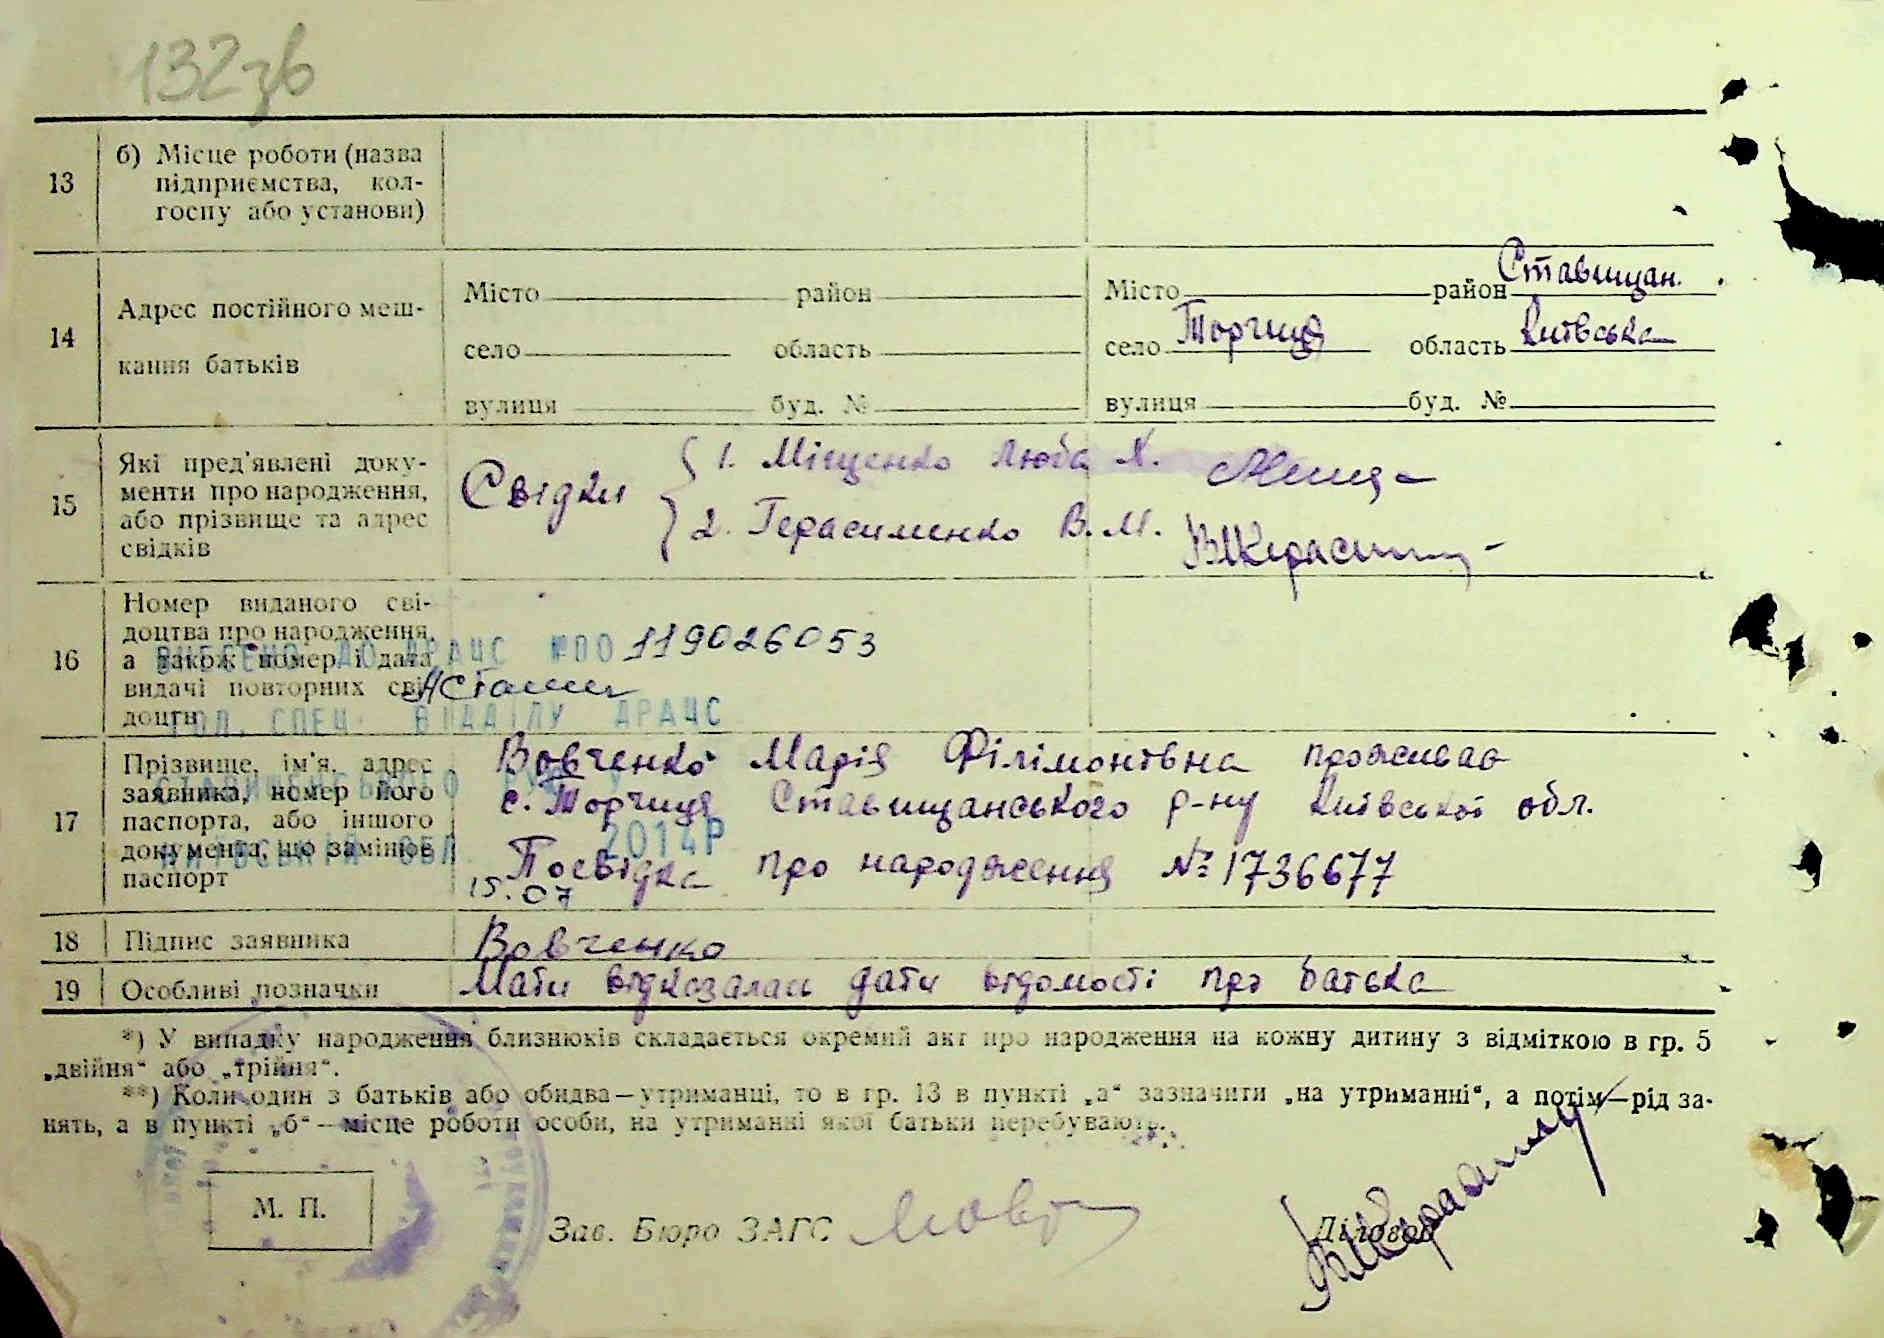 132зв
13
б) Місце роботи (назва
підприємства, кол-
госпу або установи)
14
Адрес постійного меш-
кання батьків
Місто район
село область
вулиця буд. №
Місто район Ставищан.
село Торчиця область Київська
вулиця буд. №
15
Які пред'явлені доку-
менти про народження,
або прізвище та адрес
свідків
Свідки
1. Міщенко Люба Х.
2. Герасименко В. М.
16
Номер виданого сві-
доцтва про народження,
а також номер і дата
видачі повторних сві-
доцтв
ВНЕСЕНО ДО ДРАЦС №00119026053
ГОЛ. СПЕЦ. ВІДДІЛУ ДРАЦС
17
Прізвище, ім'я, адрес
заявника, номер його
паспорта, або іншого
документа, що замінює
паспорт
Вовченко Марія Філімонівна проживає
с. Торчиця Ставищанського р-ну Київської обл.
Посвідка про народження № 1736677
15.07 2014Р
18
Підпис заявника
Вовченко
19
Особливі позначки
Мати відказалась дати відомості про батька
*) У випадку народження близнюків складається окремий акт про народження на кожну дитину з відміткою в гр. 5
„двійня“ або „трійня“.
**) Коли один з батьків або обидва—утриманці, то в гр. 13 в пункті „а“ зазначити „на утриманні“, а потім—рід за-
нять, а в пункті „б“—місце роботи особи, на утриманні якої батьки перебувають.
М. П.
Зав. Бюро ЗАГС
Діловод